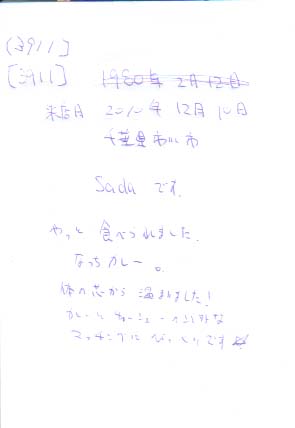 [3911]
[3911] 1980年 2月12日
来店日 2010年 12月 10日
千葉県市川市
Sada です.
やっと 食べられました.
なっちカレー。
体の芯から 温まりました!
カレーと チャーシュー 意外な
マッチングに びっくりです